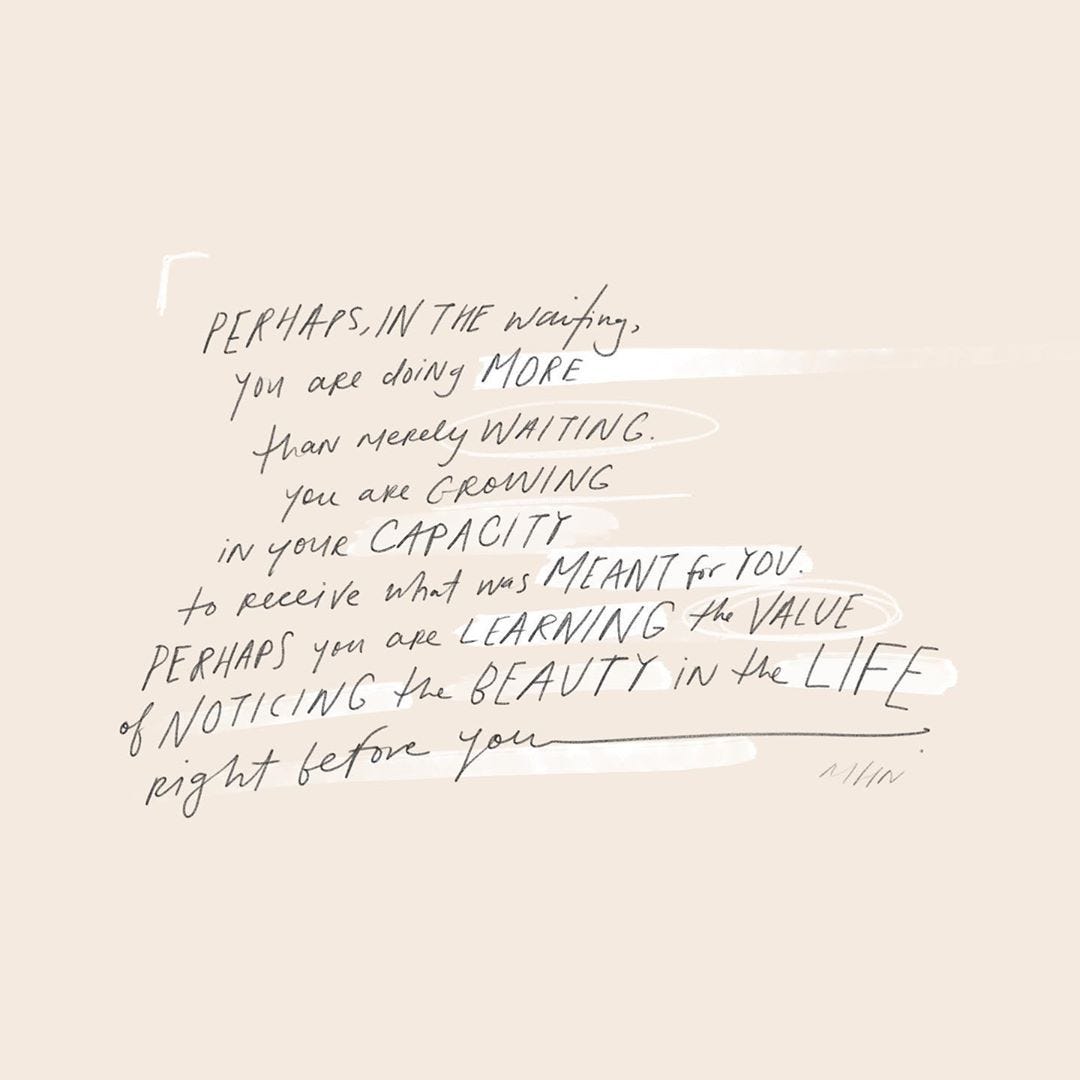 PERHAPS, IN THE waiting,
you are doing MORE
than merely WAITING.
you are GROWING
in your CAPACITY
to receive what was MEANT for YOU.
PERHAPS you are LEARNING the VALUE
of NOTICING the BEAUTY in the LIFE
right before you
MHN